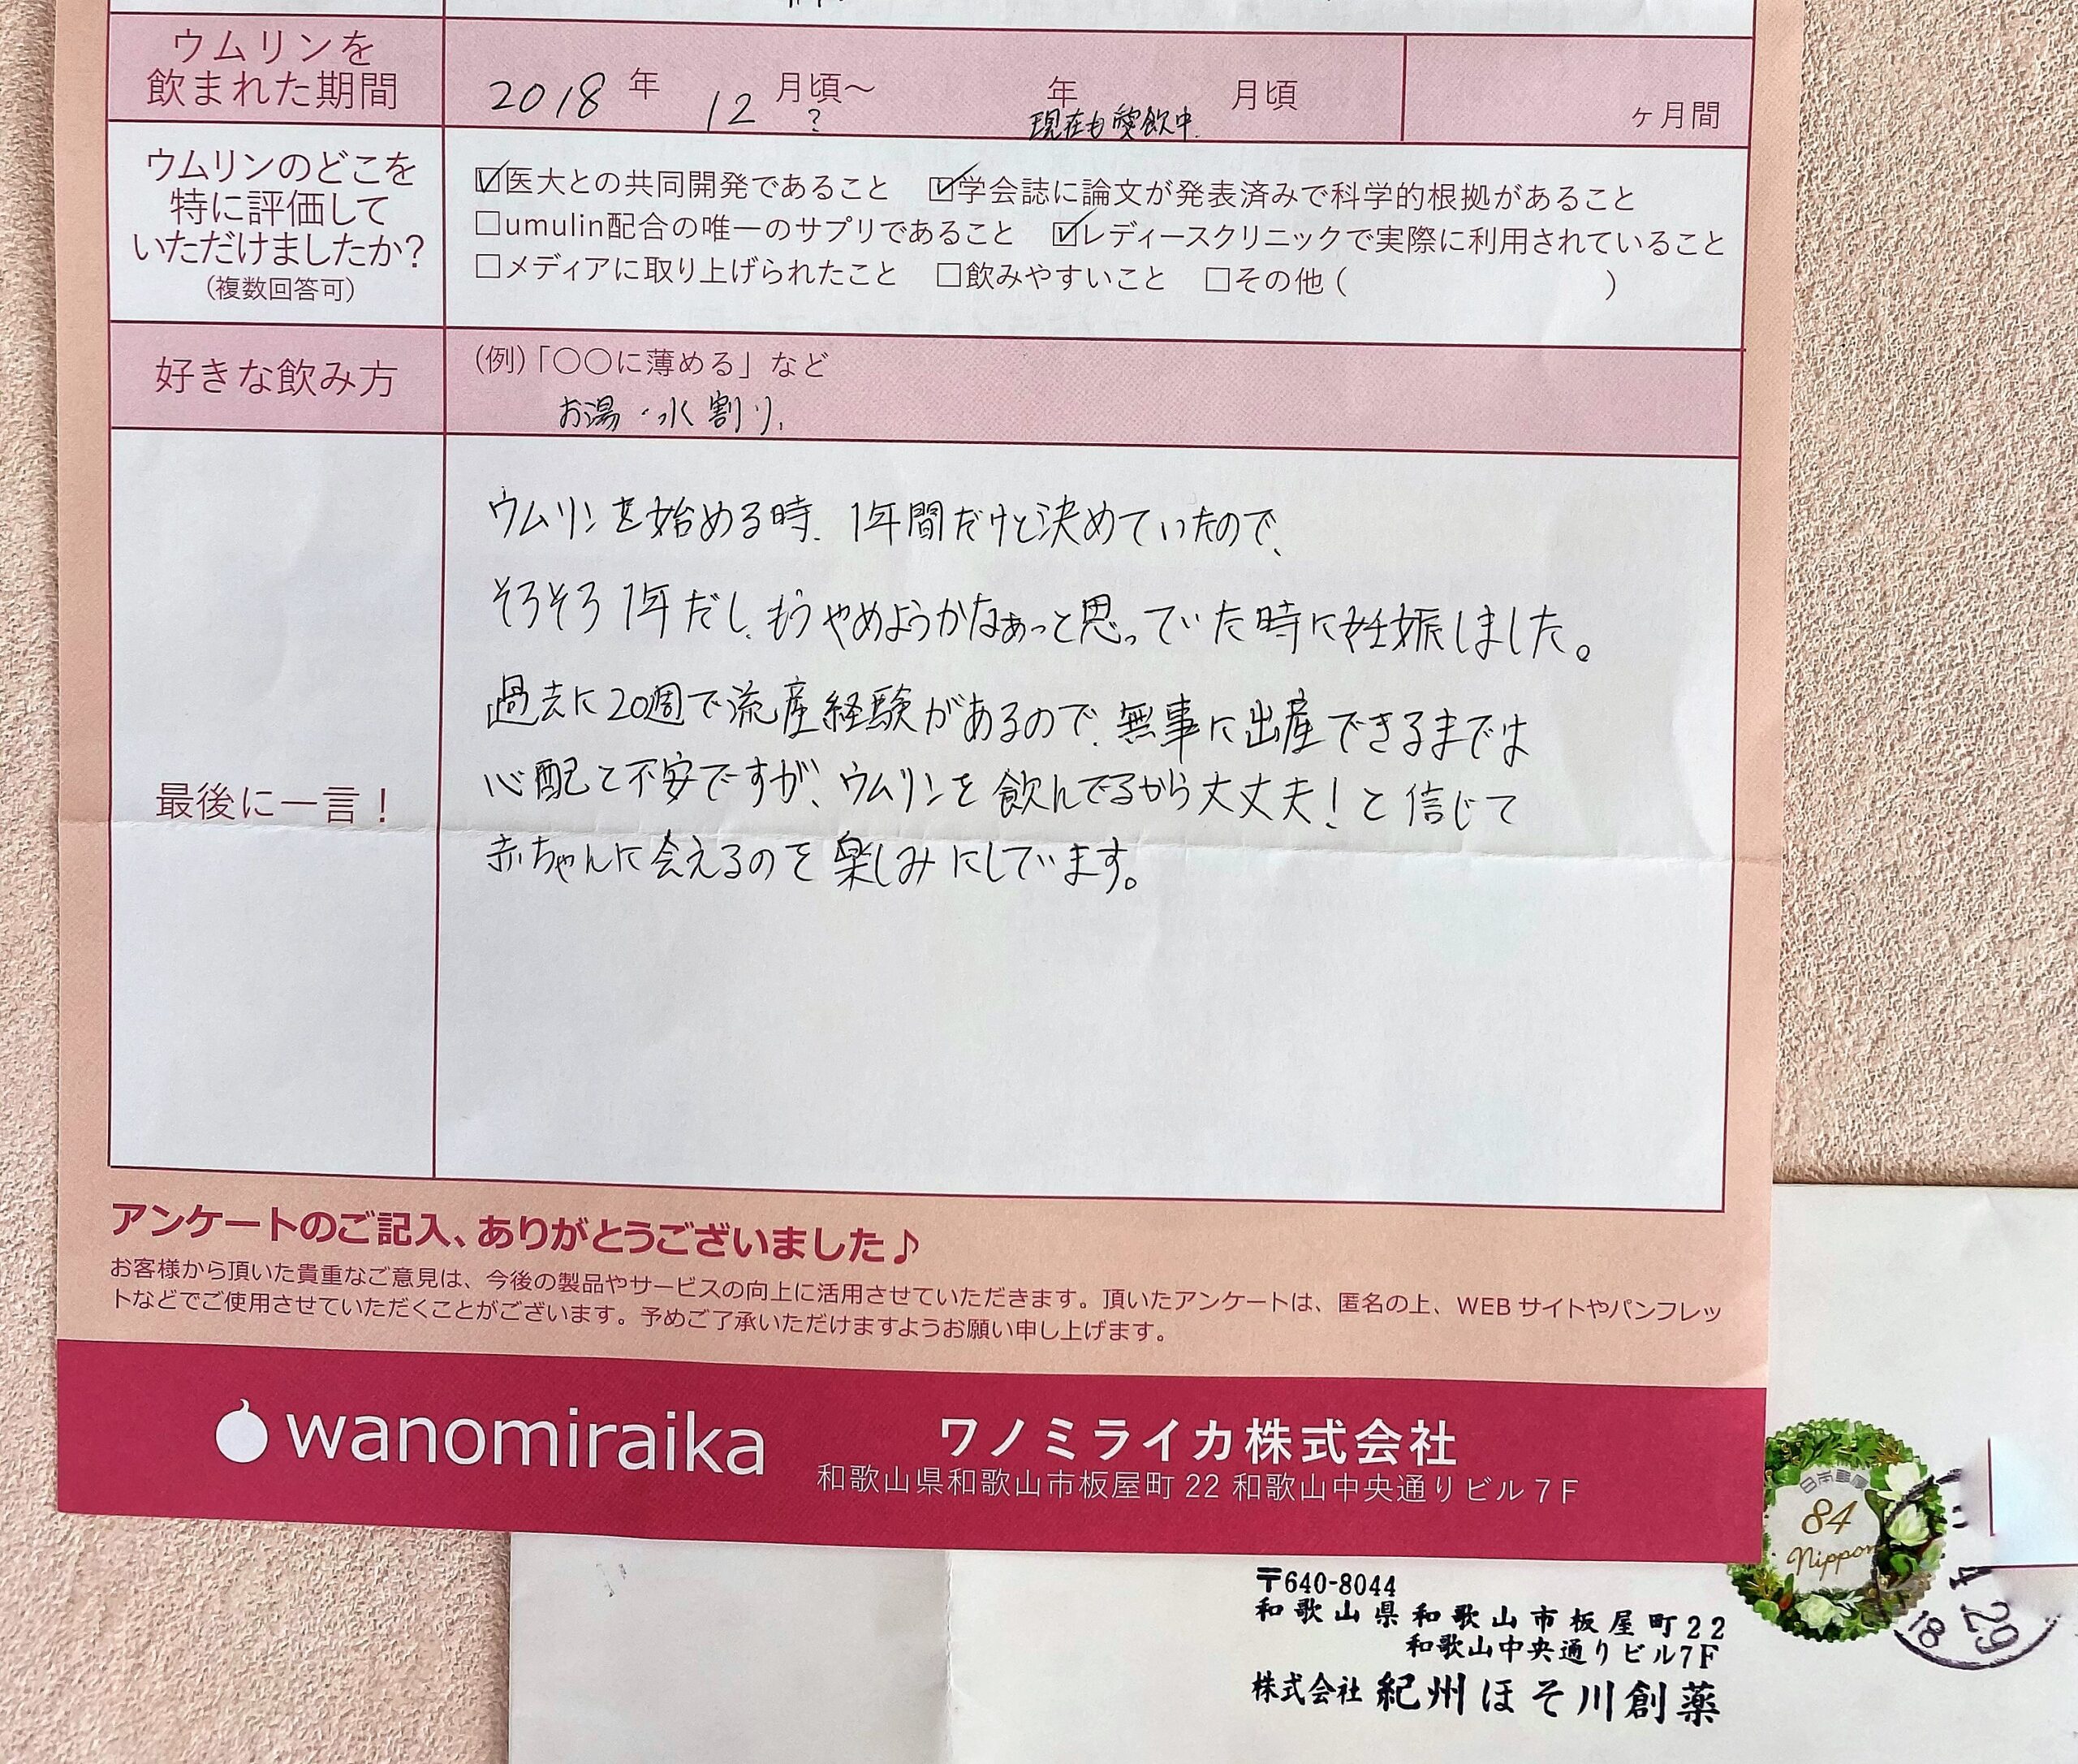 ウムリンを
飲まれた期間
2018 年 12 月頃～ 年 月頃
?
現在も愛飲中
ヶ月間
ウムリンのどこを
特に評価して
いただけましたか?
(複数回答可)
☑医大との共同開発であること ☑学会誌に論文が発表済みで科学的根拠があること
□umulin配合の唯一のサプリであること ☑レディースクリニックで実際に利用されていること
□メディアに取り上げられたこと □飲みやすいこと □その他 ( )
好きな飲み方
(例)「〇〇に薄める」など
お湯・水割り.
最後に一言!
ウムリンを始める時、1年間だけと決めていたので、
そろそろ1年だし、もうやめようかなぁっと思っていた時に妊娠しました。
過去に20週で流産経験があるので、無事に出産できるまでは
心配と不安ですが、ウムリンを飲んでるから大丈夫!と信じて
赤ちゃんに会えるのを楽しみにしています。
アンケートのご記入、ありがとうございました♪
お客様から頂いた貴重なご意見は、今後の製品やサービスの向上に活用させていただきます。頂いたアンケートは、匿名の上、WEB サイトやパンフレッ
トなどでご使用させていただくことがございます。予めご了承いただけますようお願い申し上げます。
wanomiraika
ワノミライカ株式会社
和歌山県和歌山市板屋町 22 和歌山中央通りビル 7 F
日本郵便
84
Nippon
4 29
18
〒640-8044
和歌山県和歌山市板屋町22
和歌山中央通りビル7F
株式会社 紀州ほそ川創薬